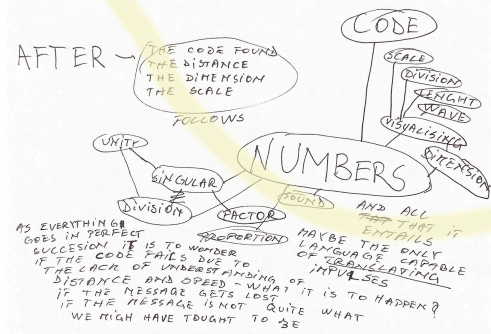 AFTER — THE CODE FOUND
THE DISTANCE
THE DIMENSION
THE SCALE
FOLLOWS
CODE
SCALE
DIVISION
LENGHT
WAVE
VISUALISING
DIMENSION
NUMBERS
UNITY
SINGULAR
DIVISION
FACTOR
SOUND
PROPORTION
AND ALL
THAT IT
ENTAILS
MAYBE THE ONLY
LANGUAGE CAPABLE
OF TRANSLATING
IMPULSES
AS EVERYTHING
GOES IN PERFECT
SUCCESION IT IS TO WONDER
IF THE CODE FAILS DUE TO
THE LACK OF UNDERSTANDING OF
DISTANCE AND SPEED – WHAT IT IS TO HAPPEN?
IF THE MESSAGE GETS LOST
IF THE MESSAGE IS NOT QUITE WHAT
WE MIGH HAVE TOUGHT TO BE